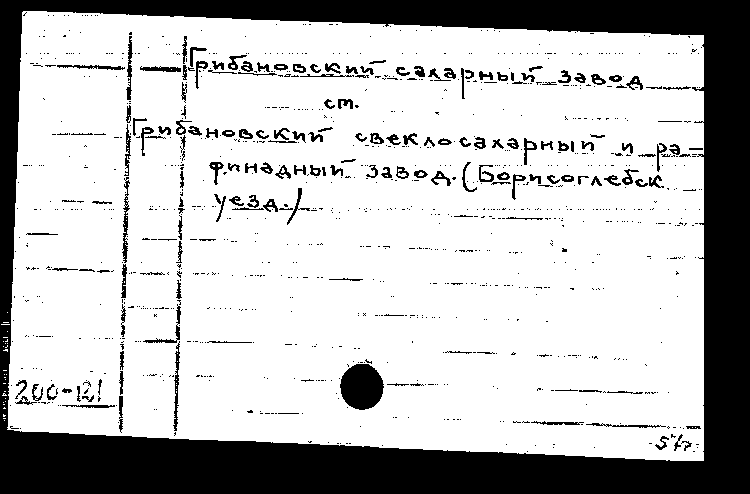 Грибановский сахарный завод
ст.
Грибановский свеклосахарный и ра-
финадный завод. (Борисоглебск
уезд.)
200-121